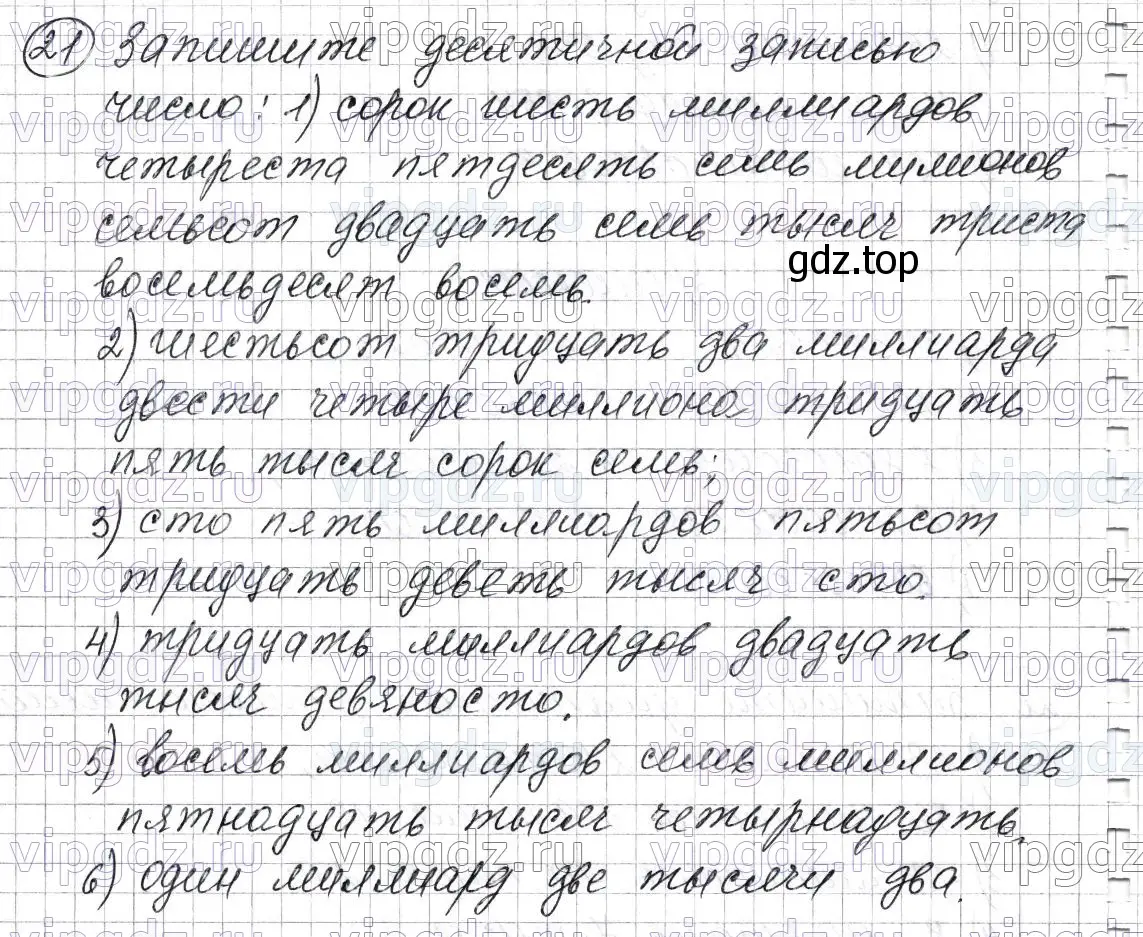 21 Запишите десятичной записью
число: 1) сорок шесть миллиардов
четыреста пятдесять семь милионов
семьсот двадцать семь тысяч триста
gdz.top
восемьдесят восемь.
2) шестьсот тридцать два миллиарда
двести четыре миллиона тридцать
пять тысяч сорок семь;
3) сто пять миллиардов пятьсот
тридцать деветь тысяч сто.
4) тридцать миллиардов двадцать
тысяч девяносто.
5) восемь миллиардов семь миллионов
пятнадцать тысяч четырнадцать.
6) один миллиард две тысячи два.
vipgdz.ru